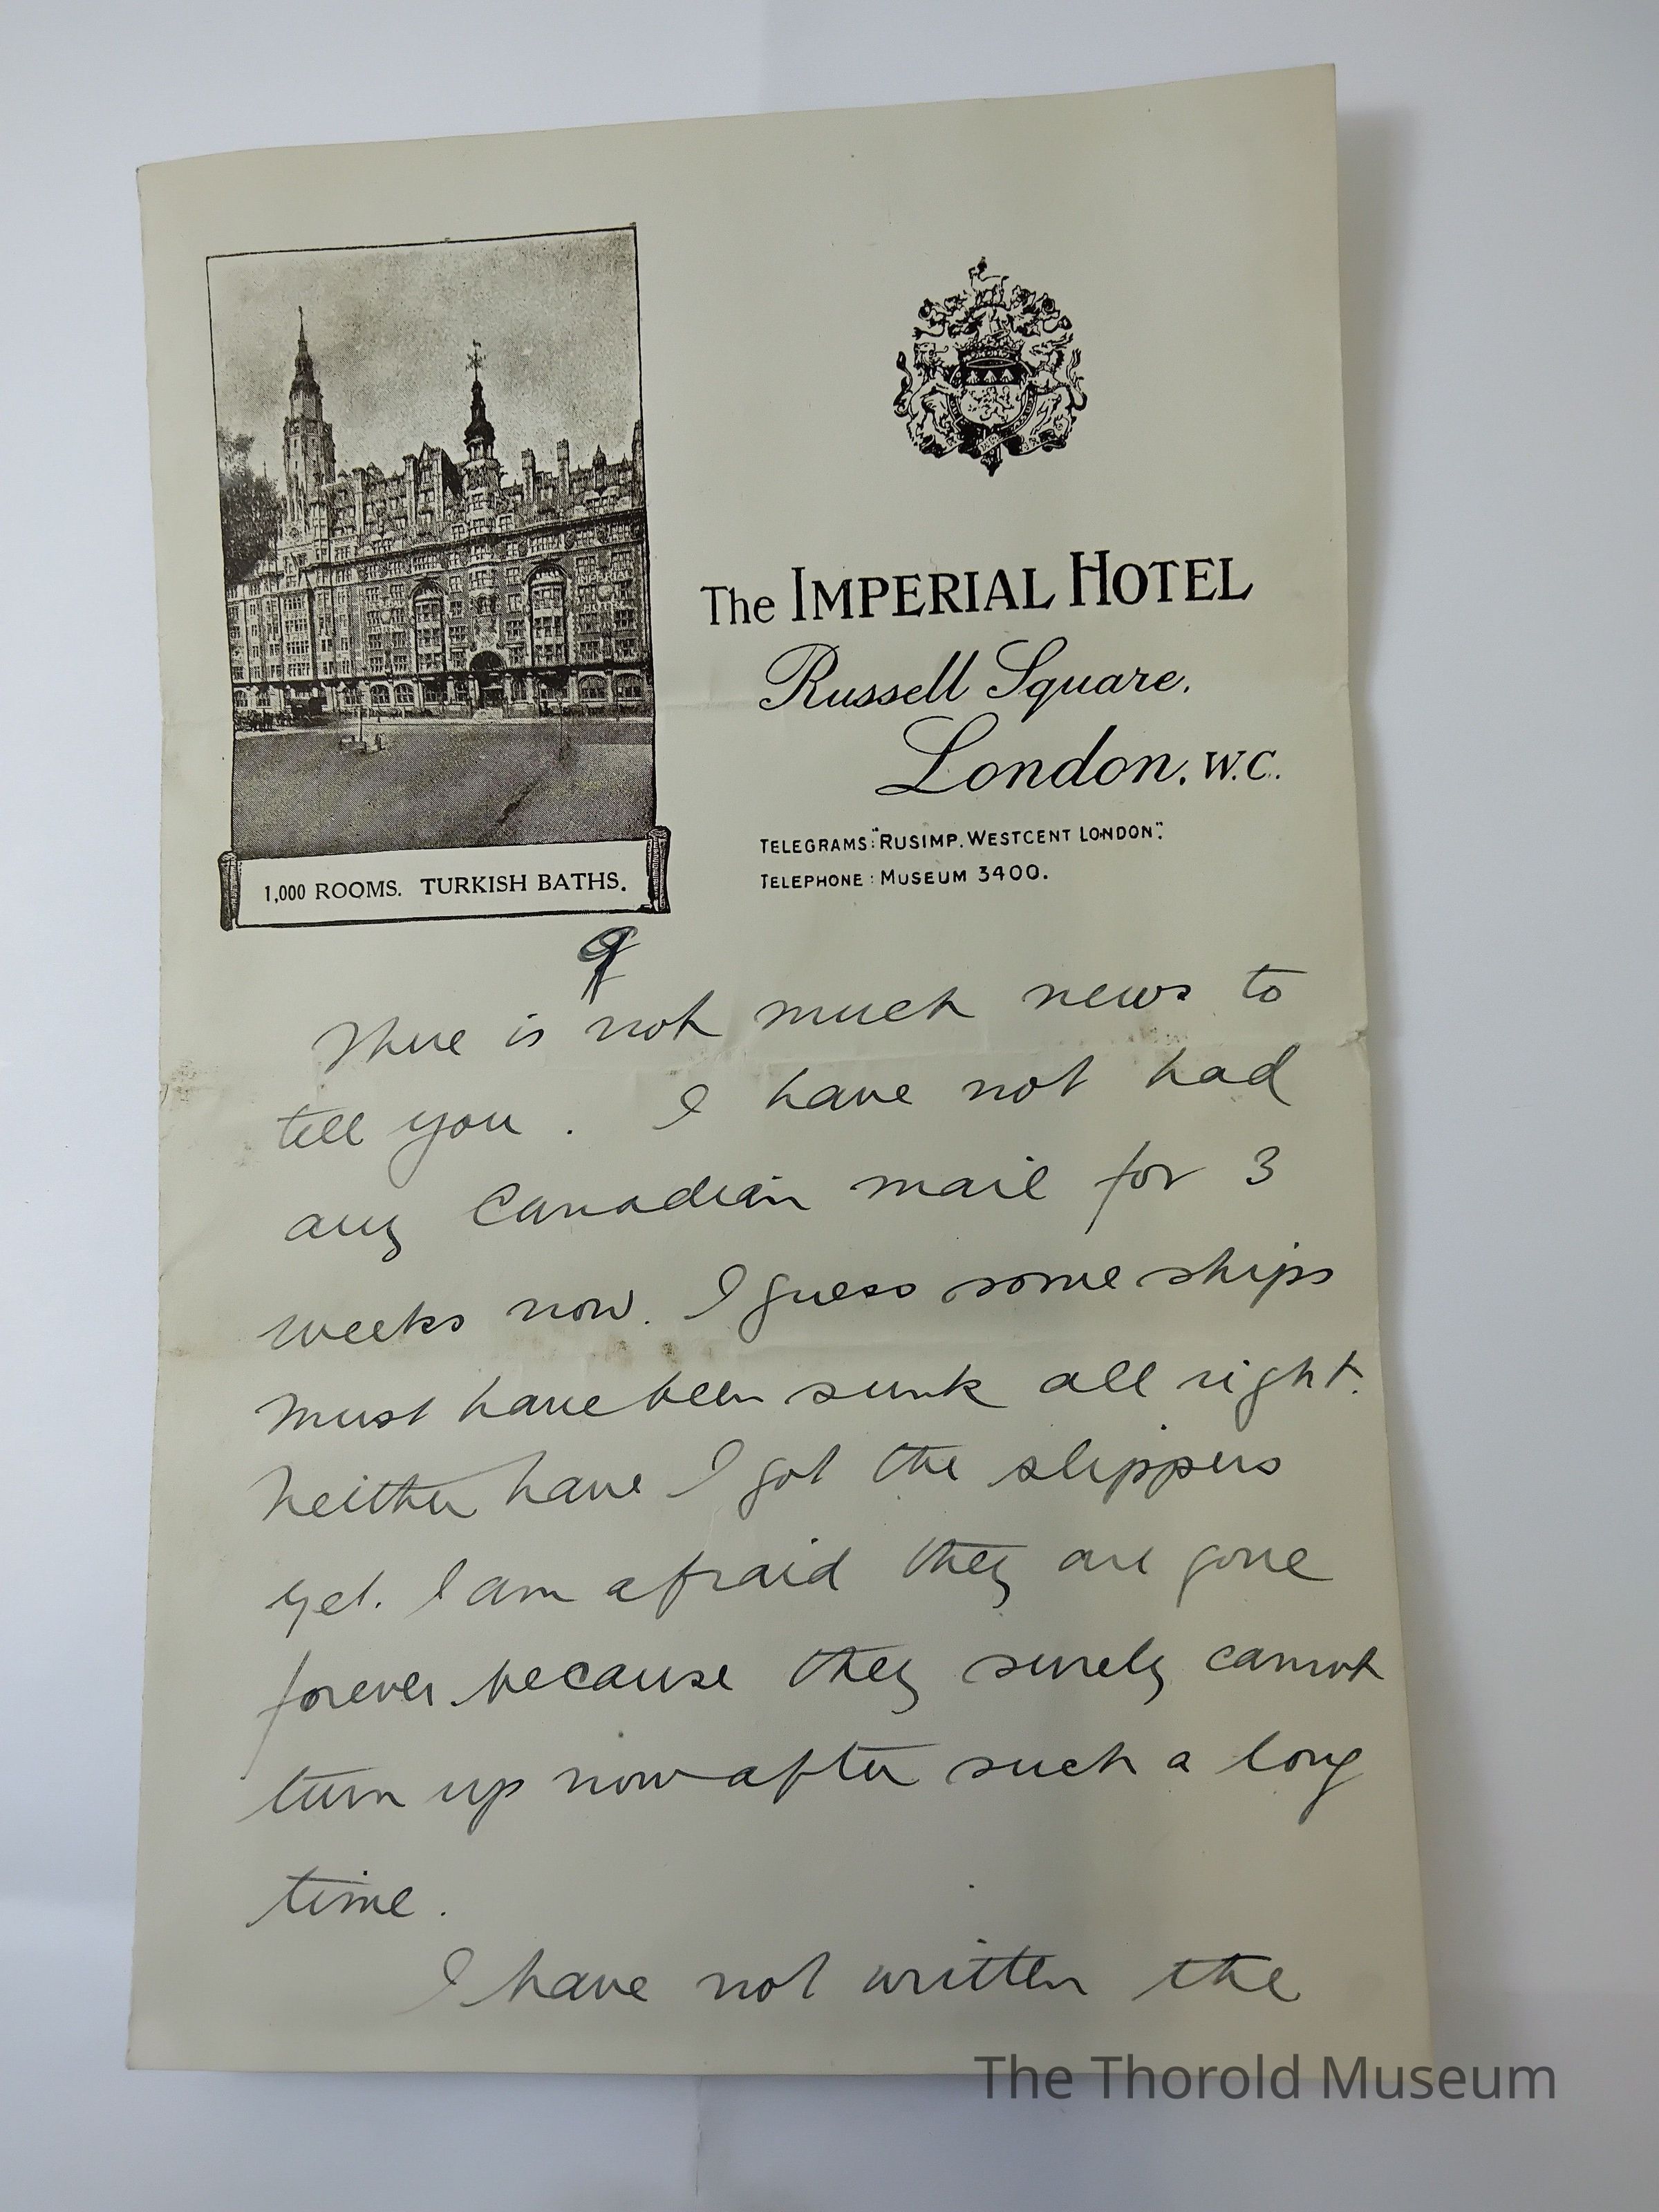 The IMPERIAL HOTEL
Russell Square,
London. W.C.
TELEGRAMS: "RUSIMP. WESTCENT LONDON".
TELEPHONE: MUSEUM 3400.
1,000 ROOMS. TURKISH BATHS.
9
There is not much news to
tell you. I have not had
any Canadian mail for 3
weeks now. I guess some ships
must have been sunk all right.
Neither have I got the slippers
yet. I am afraid they are gone
forever because they surely cannot
turn up now after such a long
time.
I have not written the
The Thorold Museum